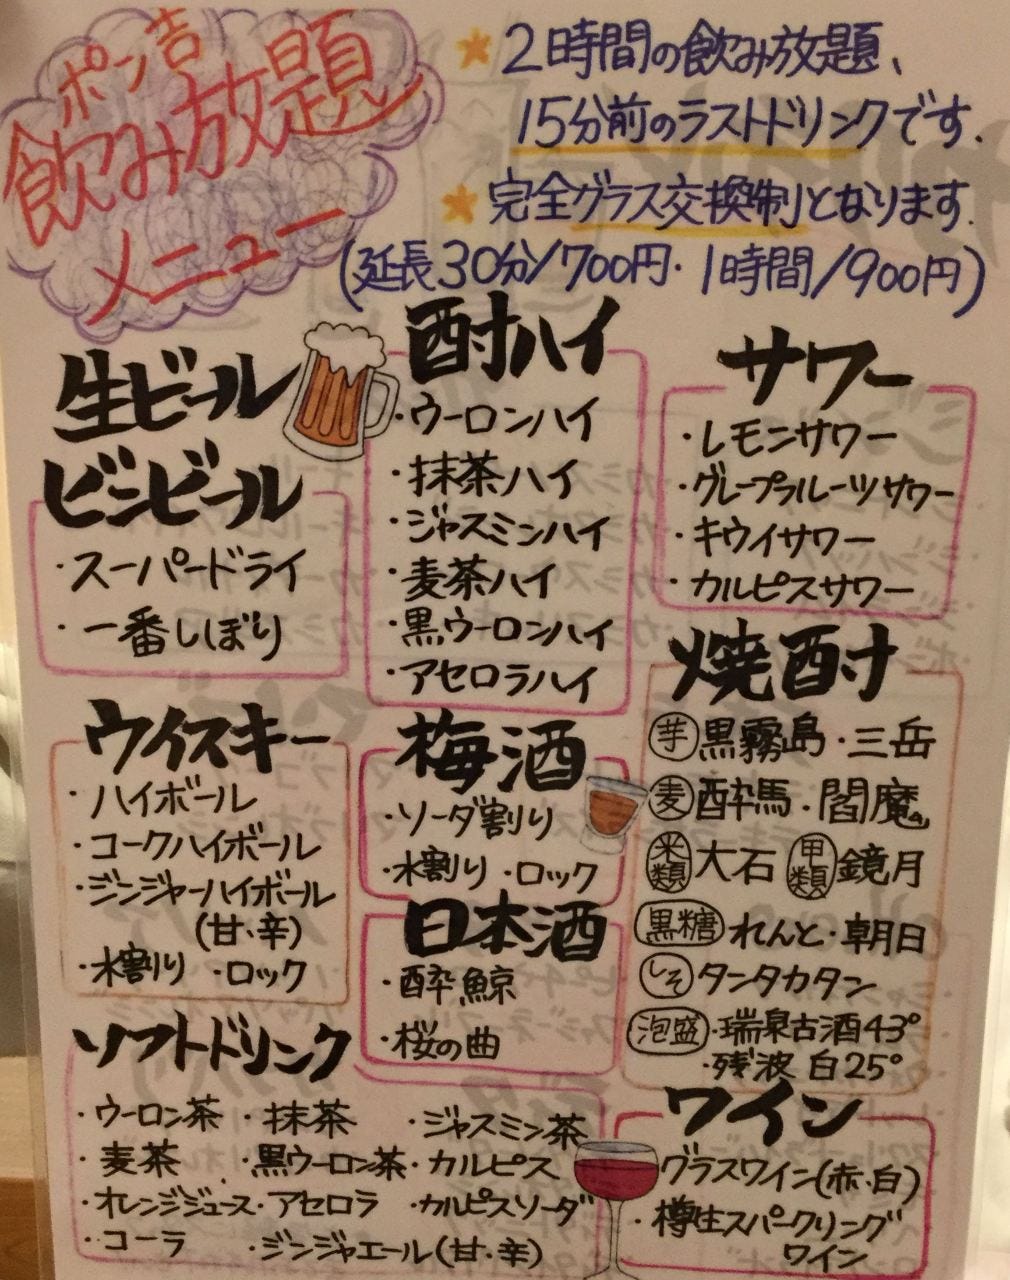 ポン吉
飲み放題
メニュー
★2時間の飲み放題、
15分前のラストドリンクです.
★完全グラス交換制となります.
(延長30分/700円・1時間/900円)
生ビール
ビンビール
・スーパードライ
・一番しぼり
酎ハイ
・ウーロンハイ
・抹茶ハイ
・ジャスミンハイ
・麦茶ハイ
・黒ウーロンハイ
・アセロラハイ
サワー
・レモンサワー
・グレープフルーツサワー
・キウイサワー
・カルピスサワー
ウイスキー
・ハイボール
・コークハイボール
・ジンジャーハイボール
(甘・辛)
・水割り ・ロック
梅酒
・ソーダ割り
・水割り ・ロック
日本酒
・酔鯨
・桜の曲
焼酎
芋 黒霧島・三岳
麦 酔馬・閻魔
米類 大石 甲類 鏡月
黒糖 れんと・朝日
しそ タンタカタン
泡盛 ・瑞泉古酒43°
・残波 白25°
ソフトドリンク
・ウーロン茶 ・抹茶 ・ジャスミン茶
・麦茶 ・黒ウーロン茶 ・カルピス
・オレンジジュース ・アセロラ ・カルピスソーダ
・コーラ ・ジンジャエール(甘・辛)
ワイン
・グラスワイン(赤・白)
・樽生スパークリング
ワイン